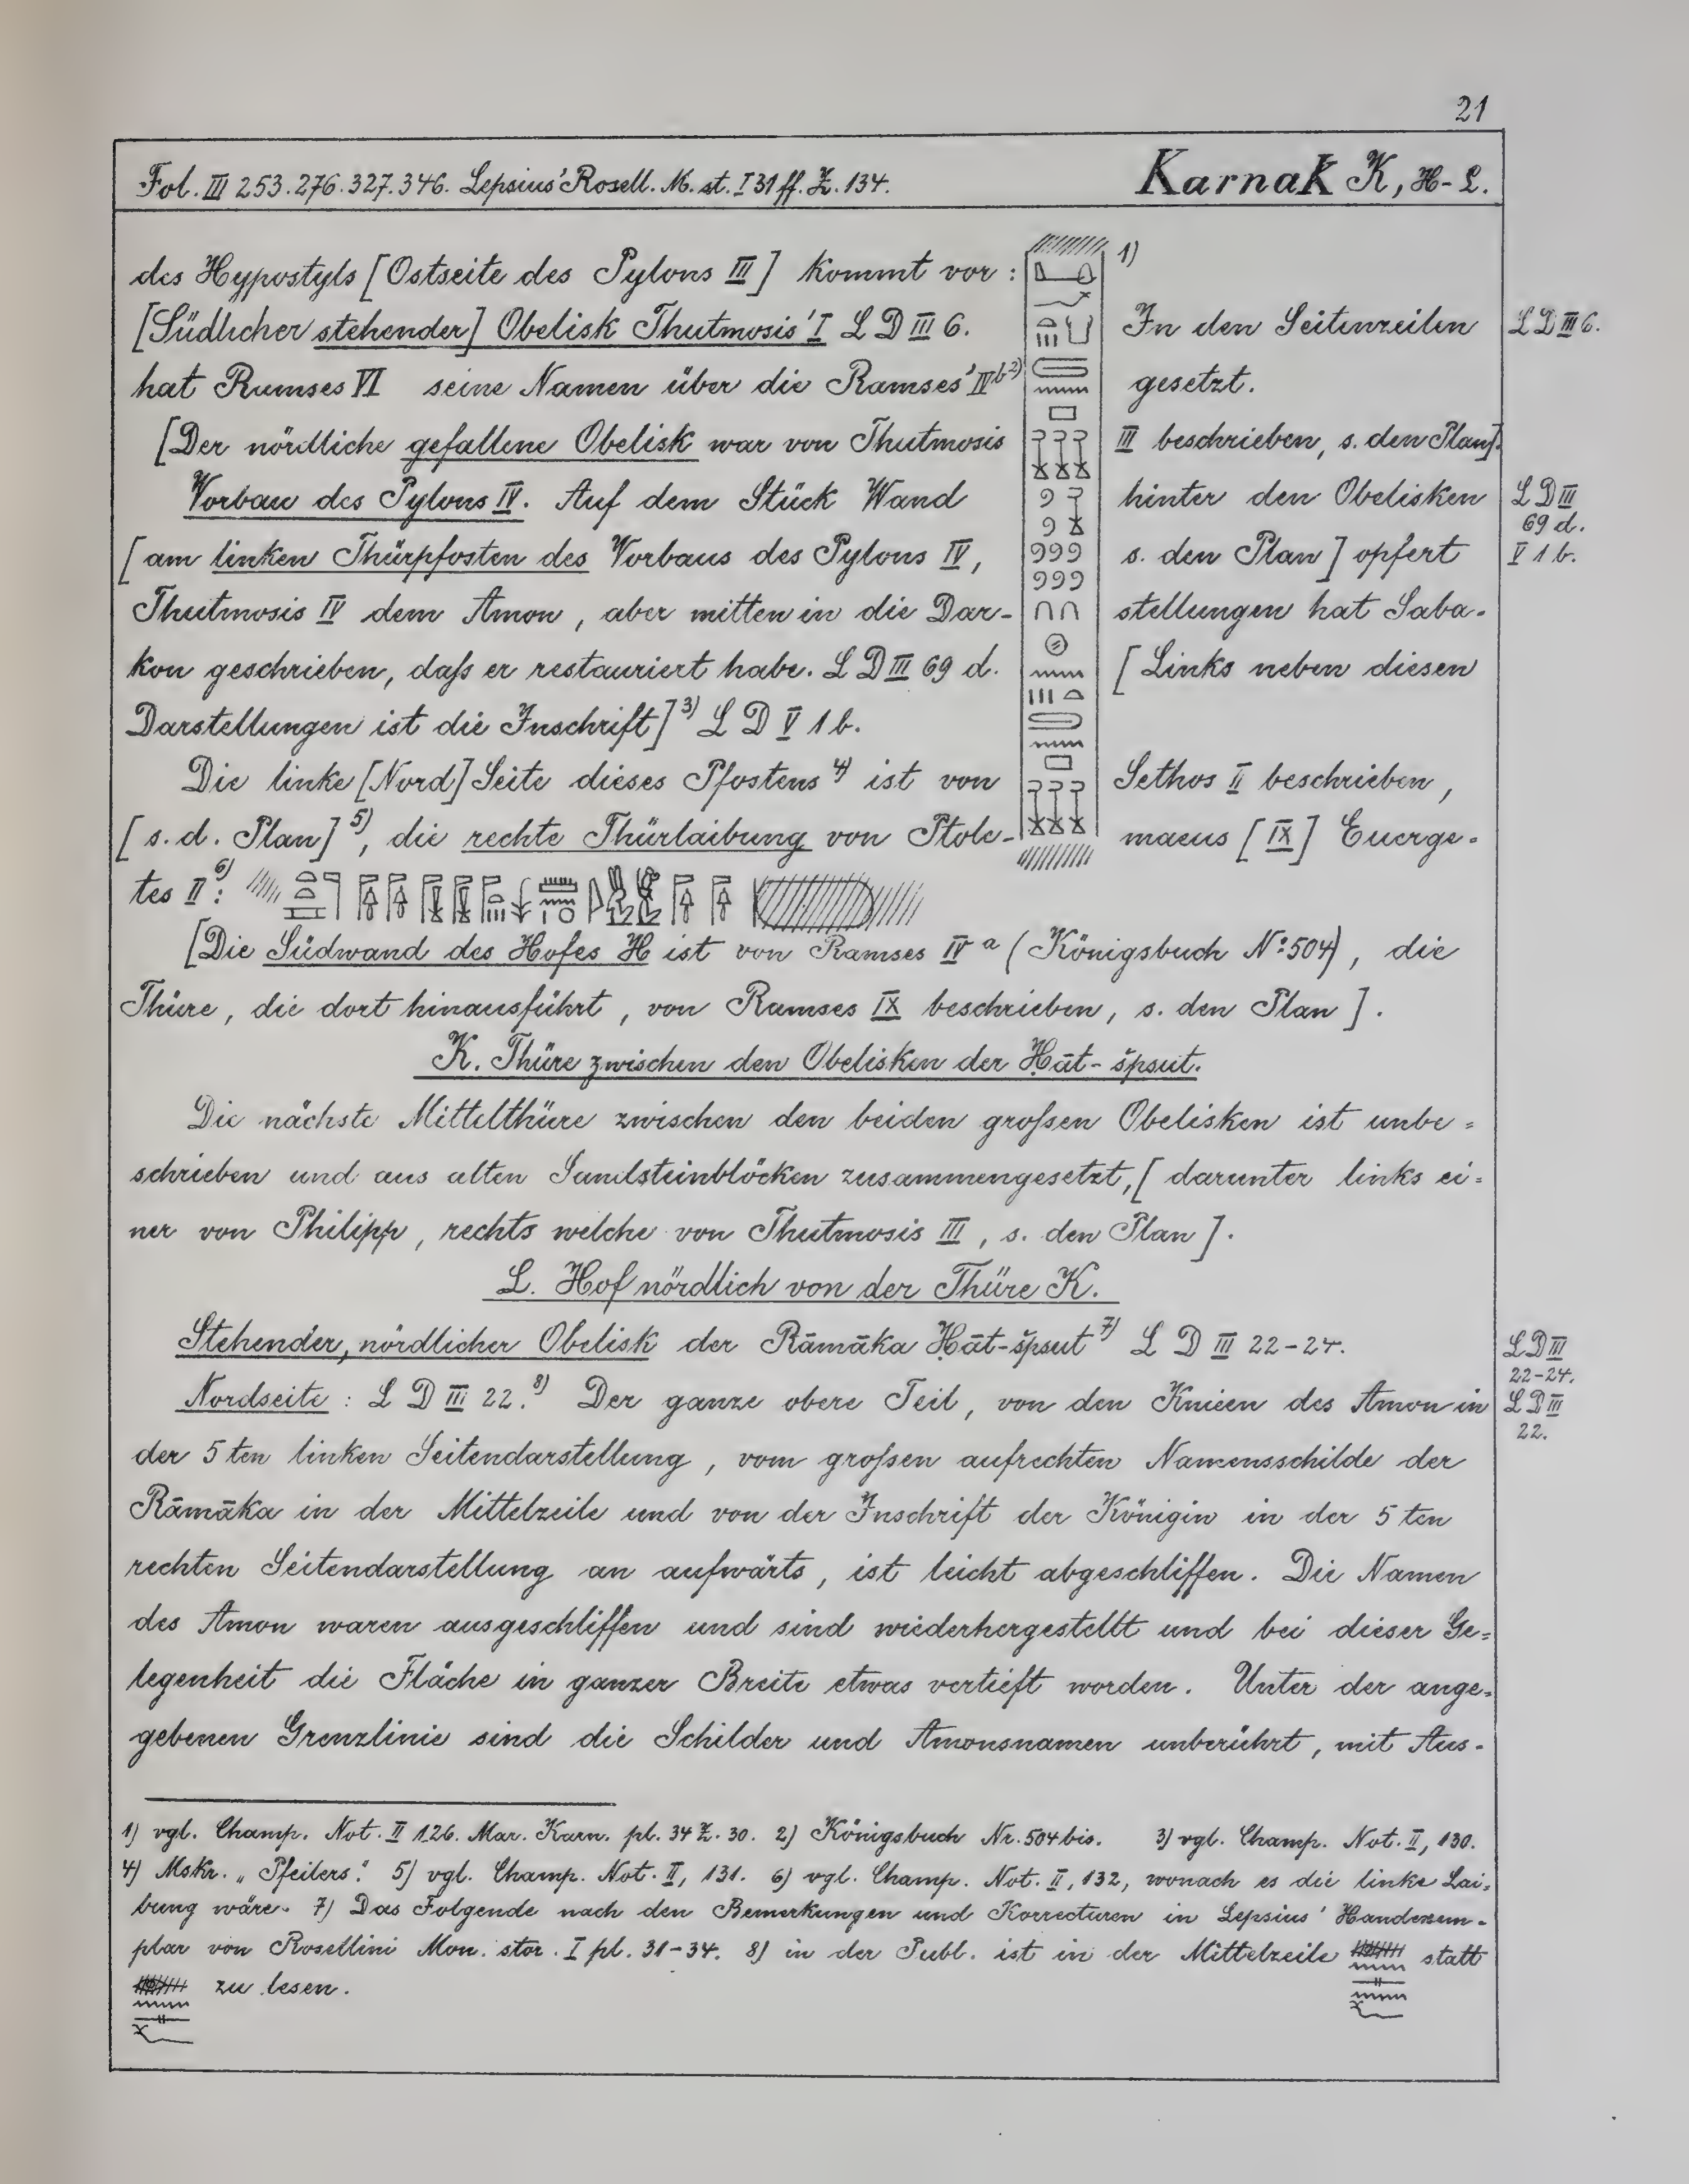 21
Fol. III 253.276.327.346. Lepsius' Rosell. M. st. I 31 ff. Z. 134.
Karnak K, H-L.
des Hypostyls [Ostseite des Pylons III] kommt vor : 1)
[Südlicher stehender] Obelisk Thutmosis' I L D III 6. In den Seitenzeilen
L D III 6.
hat Ramses VI seine Namen über die Ramses' IV b 2) gesetzt.
[Der nördliche gefallene Obelisk war von Thutmosis III beschrieben, s. den Plan].
Vorbau des Pylons IV. Auf dem Stück Wand hinter den Obelisken
L D III
69 d.
[am linken Thürpfosten des Vorbaus des Pylons IV, s. den Plan] opfert
V 1 b.
Thutmosis IV dem Amon, aber mitten in die Dar- stellungen hat Saba-
kon geschrieben, daſs er restauriert habe. L D III 69 d. [Links neben diesen
Darstellungen ist die Inschrift] 3) L D V 1 b.
Die linke [Nord] Seite dieses Pfostens 4) ist von Sethos II beschrieben,
[s. d. Plan] 5), die rechte Thürlaibung von Ptole- maeus [IX] Euerge-
tes II 6):
[Die Südwand des Hofes H ist von Ramses IV a (Königsbuch No. 504), die
Thüre, die dort hinausführt, von Ramses IX beschrieben, s. den Plan].
K. Thüre zwischen den Obelisken der Ḥāt-špsut.
Die nächste Mittelthüre zwischen den beiden groſsen Obelisken ist unbe-
schrieben und aus alten Sandsteinblöcken zusammengesetzt, [darunter links ei-
ner von Philipp, rechts welche von Thutmosis III, s. den Plan].
L. Hof nördlich von der Thüre K.
Stehender, nördlicher Obelisk der Rāmāka Ḥāt-špsut 7) L D III 22-24.
L D III
22-24.
Nordseite : L D III 22. 8) Der ganze obere Teil, von den Knieen des Amon in
L D III
22.
der 5 ten linken Seitendarstellung, vom groſsen aufrechten Namensschilde der
Rāmāka in der Mittelzeile und von der Inschrift der Königin in der 5 ten
rechten Seitendarstellung an aufwärts, ist leicht abgeschliffen. Die Namen
des Amon waren ausgeschliffen und sind wiederhergestellt und bei dieser Ge-
legenheit die Fläche in ganzer Breite etwas vertieft worden. Unter der ange-
gebenen Grenzlinie sind die Schilder und Amonsnamen unberührt, mit Aus-
1) vgl. Champ. Not. II 126. Mar. Karn. pl. 34 Z. 30. 2) Königsbuch Nr. 504 bis. 3) vgl. Champ. Not. II, 130.
4) Mskr. „Pfeilers." 5) vgl. Champ. Not. II, 131. 6) vgl. Champ. Not. II, 132, wonach es die linke Lai-
bung wäre. 7) Das Folgende nach den Bemerkungen und Korrecturen in Lepsius' Handexem-
plar von Rosellini Mon. stor. I pl. 31-34. 8) in der Publ. ist in der Mittelzeile statt
zu lesen.